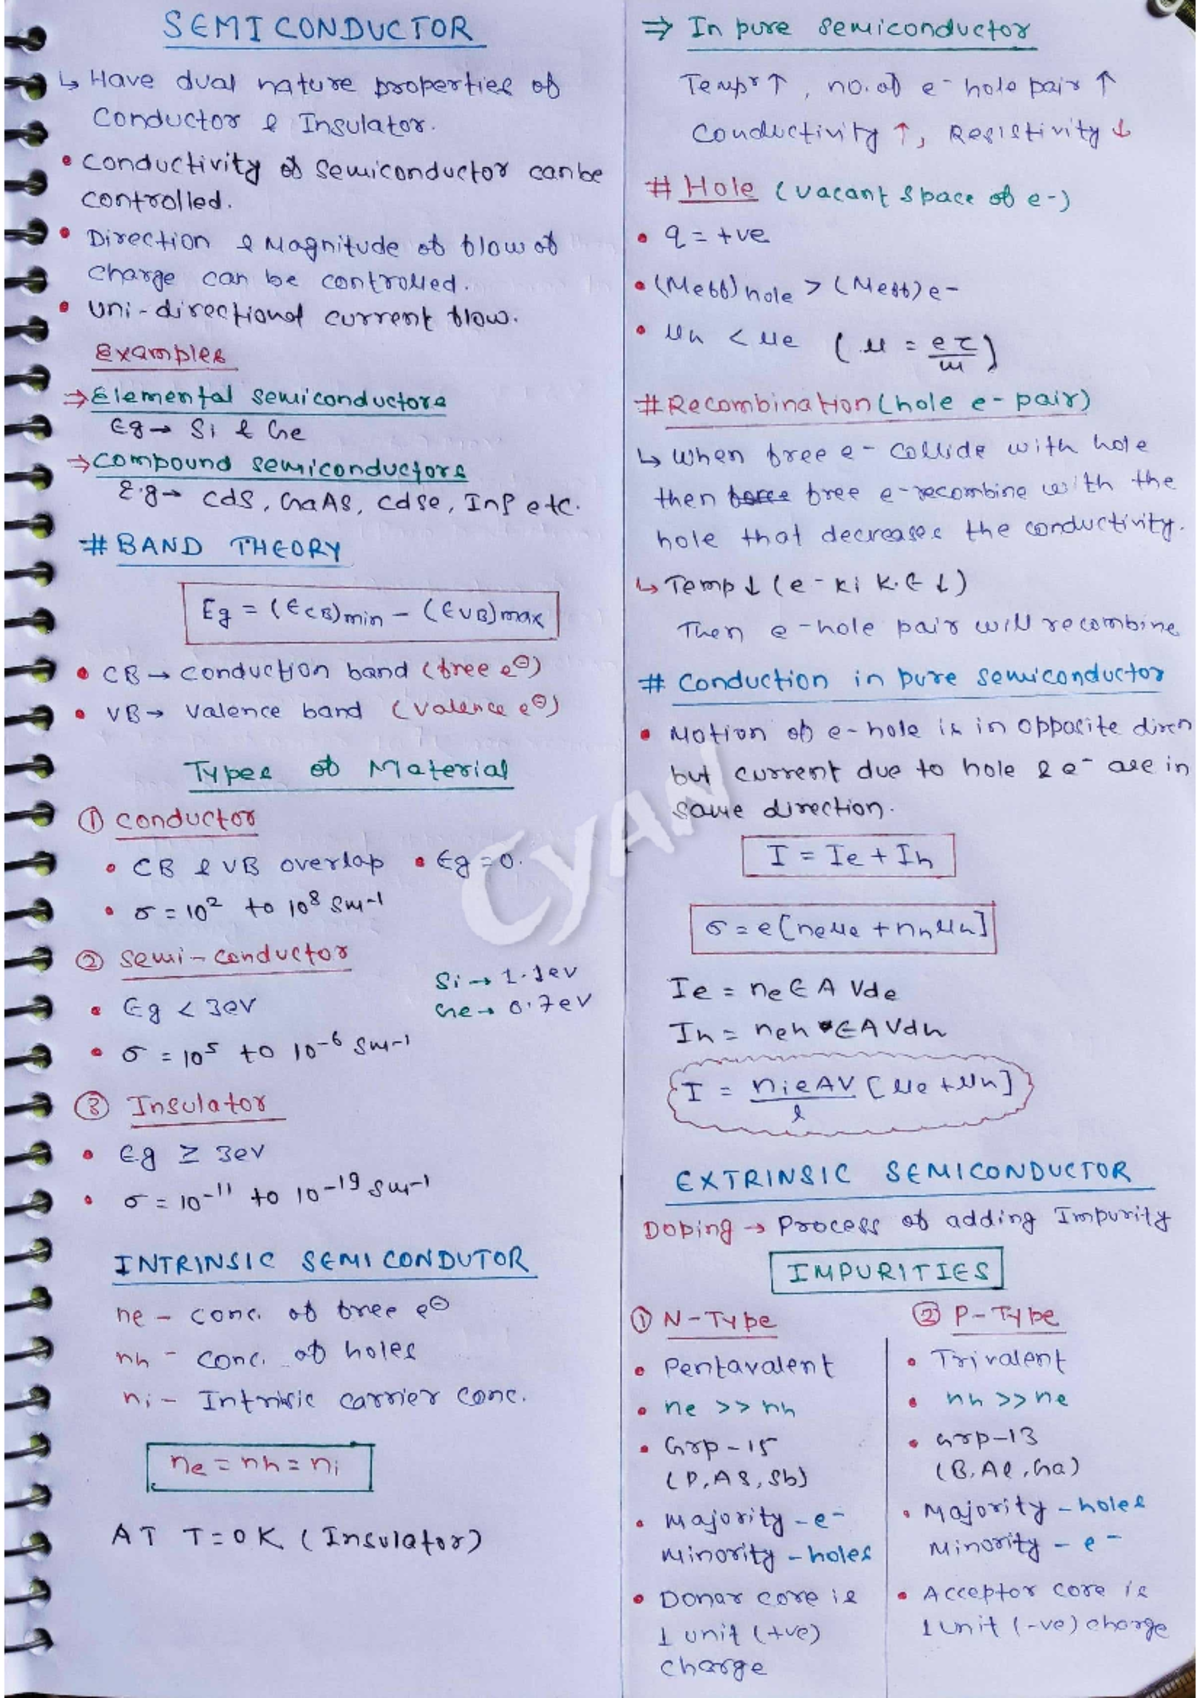 SEMICONDUCTOR
↳ Have dual nature properties of
Conductor & Insulator.
• Conductivity of Semiconductor can be
controlled.
• Direction & Magnitude of flow of
charge can be controlled.
• Uni-directional current flow.
Examples
⇒ Elemental semiconductors
Eg → Si & Ge
⇒ Compound semiconductors
E.g → CdS, GaAs, CdSe, InP etc.
# BAND THEORY
Eg = (ECB)min - (EVB)max
• CB → Conduction band (free e⊖)
• VB → Valence band (Valence e⊖)
Types of Material
① Conductor
• CB & VB overlap • Eg = 0.
• σ = 10² to 10⁸ Sm⁻¹
② Semi-conductor
Si → 1.1eV
• Eg < 3eV
Ge → 0.7eV
• σ = 10⁵ to 10⁻⁶ Sm⁻¹
③ Insulator
• Eg ≥ 3eV
• σ = 10⁻¹¹ to 10⁻¹⁹ Sm⁻¹
INTRINSIC SEMICONDUTOR
ne - conc. of free e⊖
nh - conc. of holes
ni - Intrinsic carrier conc.
ne = nh = ni
AT T=0K (Insulator)
⇒ In pure semiconductor
Temp↑, no. of e- hole pair ↑
Conductivity ↑, Resistivity ↓
# Hole (Vacant space of e-)
• q = +ve
• (Meff)hole > (Meff)e-
• μh < μe (μ = eτ/m)
# Recombination (hole e- pair)
↳ When free e- collide with hole
then free e- recombine with the
hole that decreases the conductivity.
↳ Temp ↓ (e- ki K.E ↓)
Then e-hole pair will recombine
# Conduction in pure semiconductor
• Motion of e-hole is in opposite dircn
but current due to hole & e- are in
same direction.
I = Ie + Ih
σ = e[neμe + nhμh]
Ie = neEA Vde
Ih = neh EAVdh
I = nieAV/l [μe + μh]
EXTRINSIC SEMICONDUCTOR
Doping → Process of adding Impurity
IMPURITIES
① N-Type
• Pentavalent
• ne >> nh
• Grp-15
(P, As, Sb)
• Majority - e-
Minority - holes
• Donar core is
1 unit (+ve)
charge
② P-Type
• Trivalent
• nh >> ne
• Grp-13
(B, Al, Ga)
• Majority - holes
Minority - e-
• Acceptor core is
1 unit (-ve) charge
CYAN